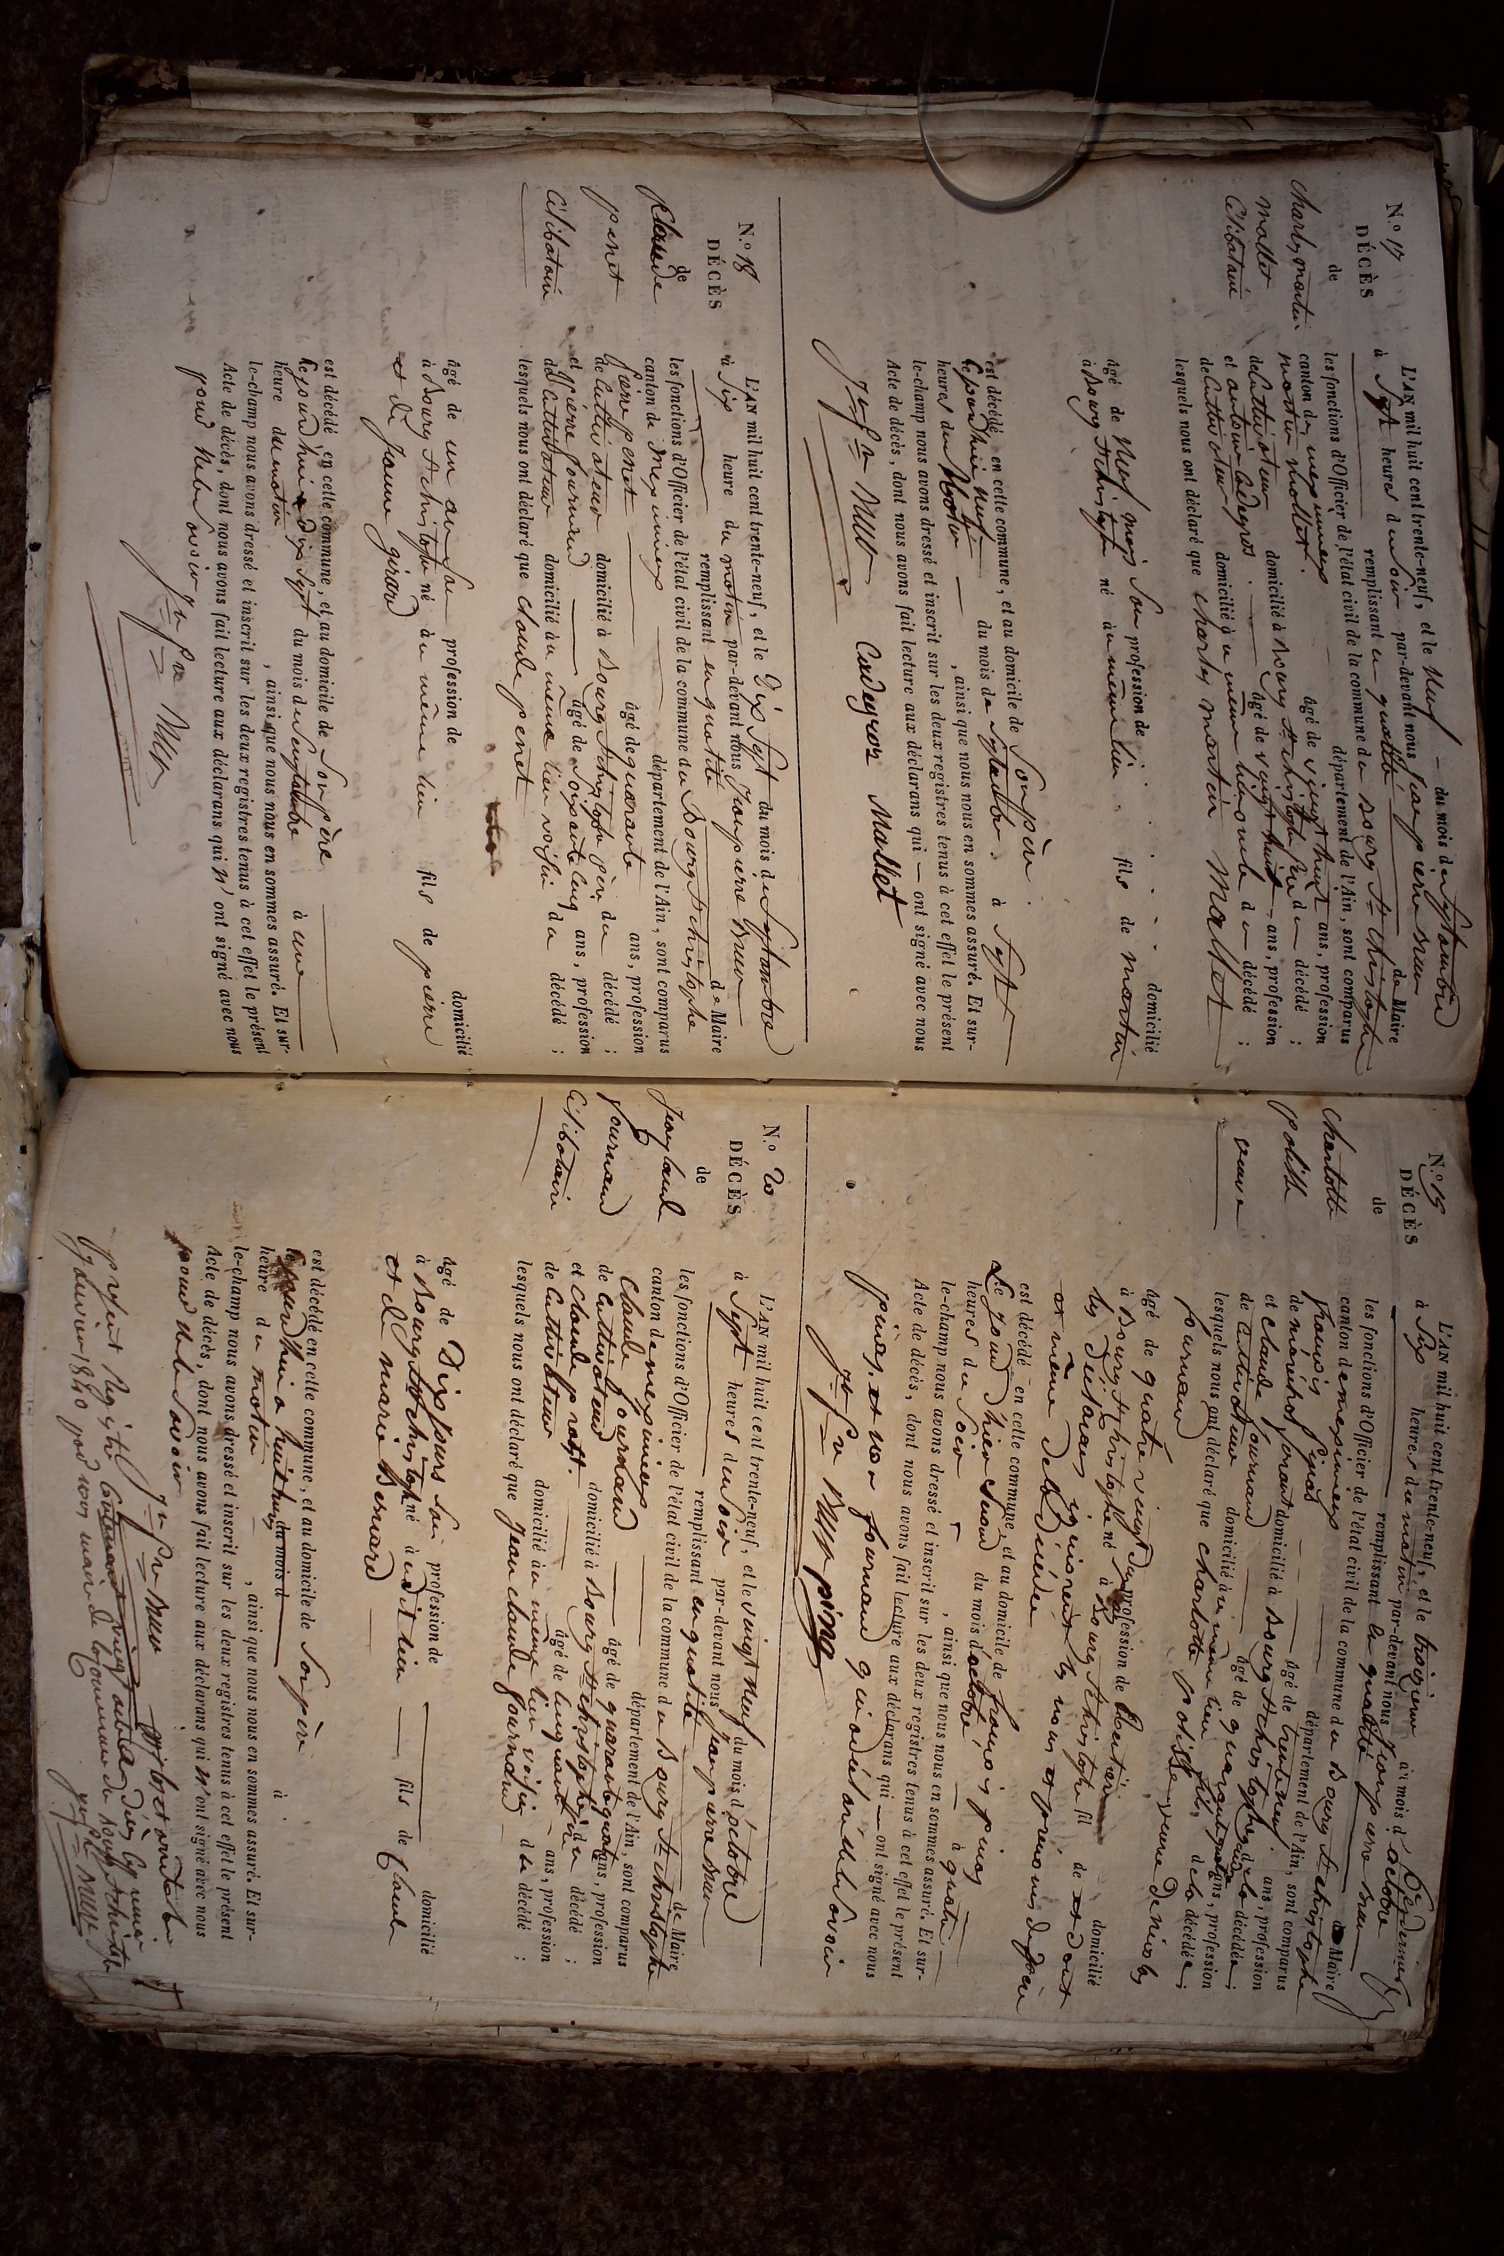 N.° 17
DÉCÈS
de
Charles martin
mallet
Célibataire
L'AN mil huit cent trente-neuf, et le neuf du mois de Septembre
à Sept heures du soir par-devant nous Jean pierre
remplissant en qualité de Maire
les fonctions d'Officier de l'état civil de la commune du Bourg St christophe
canton de meximieux département de l'Ain, sont comparus
martin mallet âgé de vingt huit ans, profession
de Cultivateur domicilié à Bourg St christophe père du décédé ;
et antoine Cadegros âgé de vingt huit ans, profession
de Cultivateur domicilié à u même lieu oncle du décédé ;
lesquels nous ont déclaré que charles martin mallet
âgé de neuf mois son profession de domicilié
à Bourg St christophe né à u même lieu fils de martin
est décédé en cette commune, et au domicile de son père
Cejourdhui neuf du mois de Septembre à Sept
heures du matin, ainsi que nous nous en sommes assuré. Et sur-
le-champ nous avons dressé et inscrit sur les deux registres tenus à cet effet le présent
Acte de décès, dont nous avons fait lecture aux déclarans qui ont signé avec nous
Cadegros Mallet
N.° 18
DÉCÈS
de
Claude
penet
Célibataire
L'AN mil huit cent trente-neuf, et le Dix Sept du mois de Septembre
à Six heure du matin par-devant nous Jean pierre
remplissant en qualité de Maire
les fonctions d'Officier de l'état civil de la commune du Bourg St christophe
canton de Meximieux département de l'Ain, sont comparus
pierre penet âgé de quarante ans, profession
de Cultivateur domicilié à Bourg St christophe père du décédé ;
et pierre fournand âgé de Soixante cinq ans, profession
de Cultivateur domicilié à u même lieu voisin du décédé ;
lesquels nous ont déclaré que Claude penet
âgé de un an profession de domicilié
à Bourg St christophe né à u même lieu fils de pierre
et de Jeanne girard
est décédé en cette commune, et au domicile de son père
Cejourdhui dix Sept du mois de Septembre à une
heure du matin, ainsi que nous nous en sommes assuré. Et sur-
le-champ nous avons dressé et inscrit sur les deux registres tenus à cet effet le présent
Acte de décès, dont nous avons fait lecture aux déclarans qui n'ont signé avec nous
pour ne le savoir
N.° 19
DÉCÈS
de
Charlotte
polisse
veuve
L'AN mil huit cent trente-neuf, et le troisieme du mois d'octobre
à Six heures du matin par-devant nous Jean pierre
remplissant en qualité de Maire
les fonctions d'Officier de l'état civil de la commune du Bourg St christophe
canton de meximieux département de l'Ain, sont comparus
françois pinas âgé de trente neuf ans, profession
de maréchal ferant domicilié à Bourg St christophe de la décédée ;
et claude fournand âgé de quarante ans, profession
de Cultivateur domicilié à u même lieu fils de la décédée ;
lesquels nous ont déclaré que charlotte polisse veuve de nicolas
fournand
âgé de quatre vingt profession de Rentière domicilié
à Bourg St christophe né à Bourg St christophe fil de et dont
les déclarans ignorent les noms et prénoms du père
et mère de la Décédée
est décédé en cette commune, et au domicile de françois pinas
Le jour d'hier du mois d'octobre à quatre
heures du Soir, ainsi que nous nous en sommes assuré. Et sur-
le-champ nous avons dressé et inscrit sur les deux registres tenus à cet effet le présent
Acte de décès, dont nous avons fait lecture aux déclarans qui ont signé avec nous
pinas, et non fournand qui a déclaré ne le savoir
pinas
N.° 20
DÉCÈS
de
Jean claude
fournand
Célibataire
L'AN mil huit cent trente-neuf, et le vingt neuf du mois d'octobre
à Sept heures du soir par-devant nous Jean pierre
remplissant en qualité de Maire
les fonctions d'Officier de l'état civil de la commune du Bourg St christophe
canton de meximieux département de l'Ain, sont comparus
Claude fournand âgé de quarante quatre ans, profession
de Cultivateur domicilié à Bourg St christophe père du décédé ;
et claude prost âgé de cinquante ans, profession
de Cultivateur domicilié à u même lieu voisin du décédé ;
lesquels nous ont déclaré que Jean claude fournand
âgé de Dix jours profession de domicilié
à Bourg St christophe né à u dit lieu fils de Claude
et de marie Bernard
est décédé en cette commune, et au domicile de son père
Cejourdhui a huit heures du mois d à
heure du matin, ainsi que nous nous en sommes assuré. Et sur-
le-champ nous avons dressé et inscrit sur les deux registres tenus à cet effet le présent
Acte de décès, dont nous avons fait lecture aux déclarans qui n'ont signé avec nous
pour ne le Savoir
présent Registre Contenant vingt actes de décès
janvier 1840 par nous maire de la Commune du Bourg St christophe